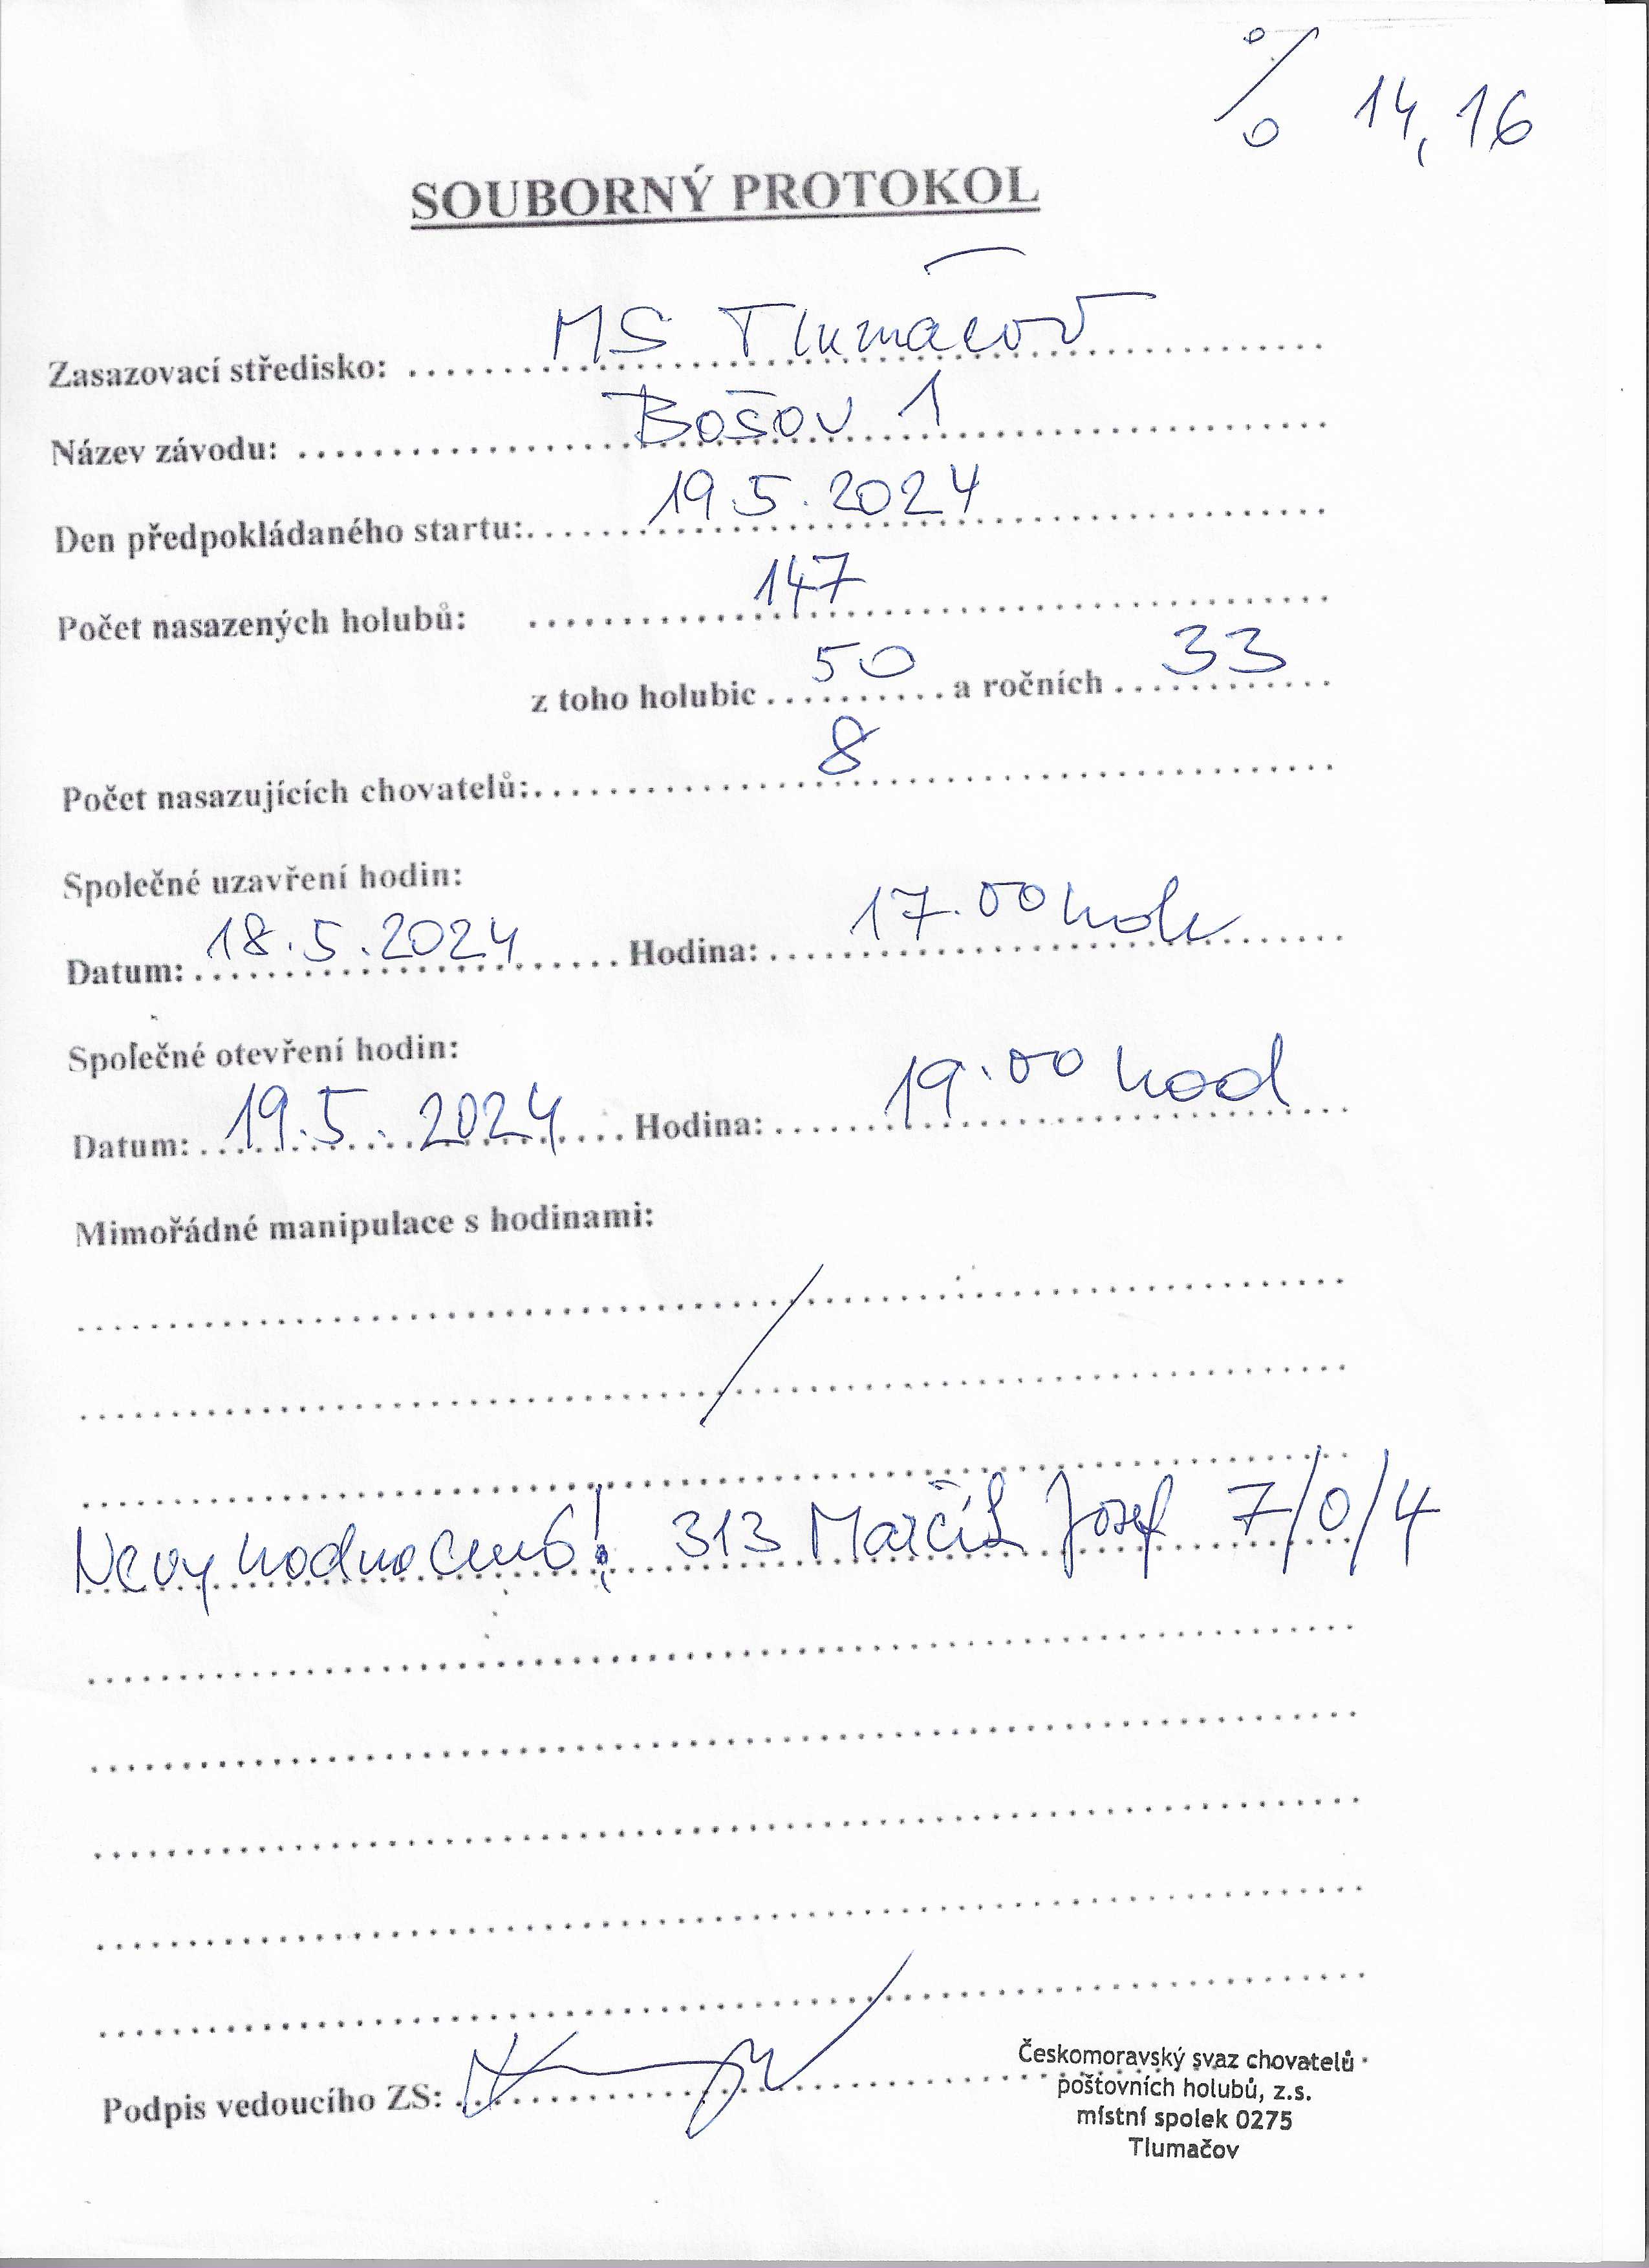 % 14,16
SOUBORNÝ PROTOKOL
Zasazovací středisko: MS Tlumačov
Název závodu: Bošov 1
Den předpokládaného startu: 19.5.2024
Počet nasazených holubů: 147
z toho holubic 50 a ročních 33
Počet nasazujících chovatelů: 8
Společné uzavření hodin:
Datum: 18.5.2024 Hodina: 17.00 hod
Společné otevření hodin:
Datum: 19.5.2024 Hodina: 19.00 hod
Mimořádné manipulace s hodinami:
/
313 Marčík Josef 7/0/4
Podpis vedoucího ZS:
Českomoravský svaz chovatelů
poštovních holubů, z.s.
místní spolek 0275
Tlumačov